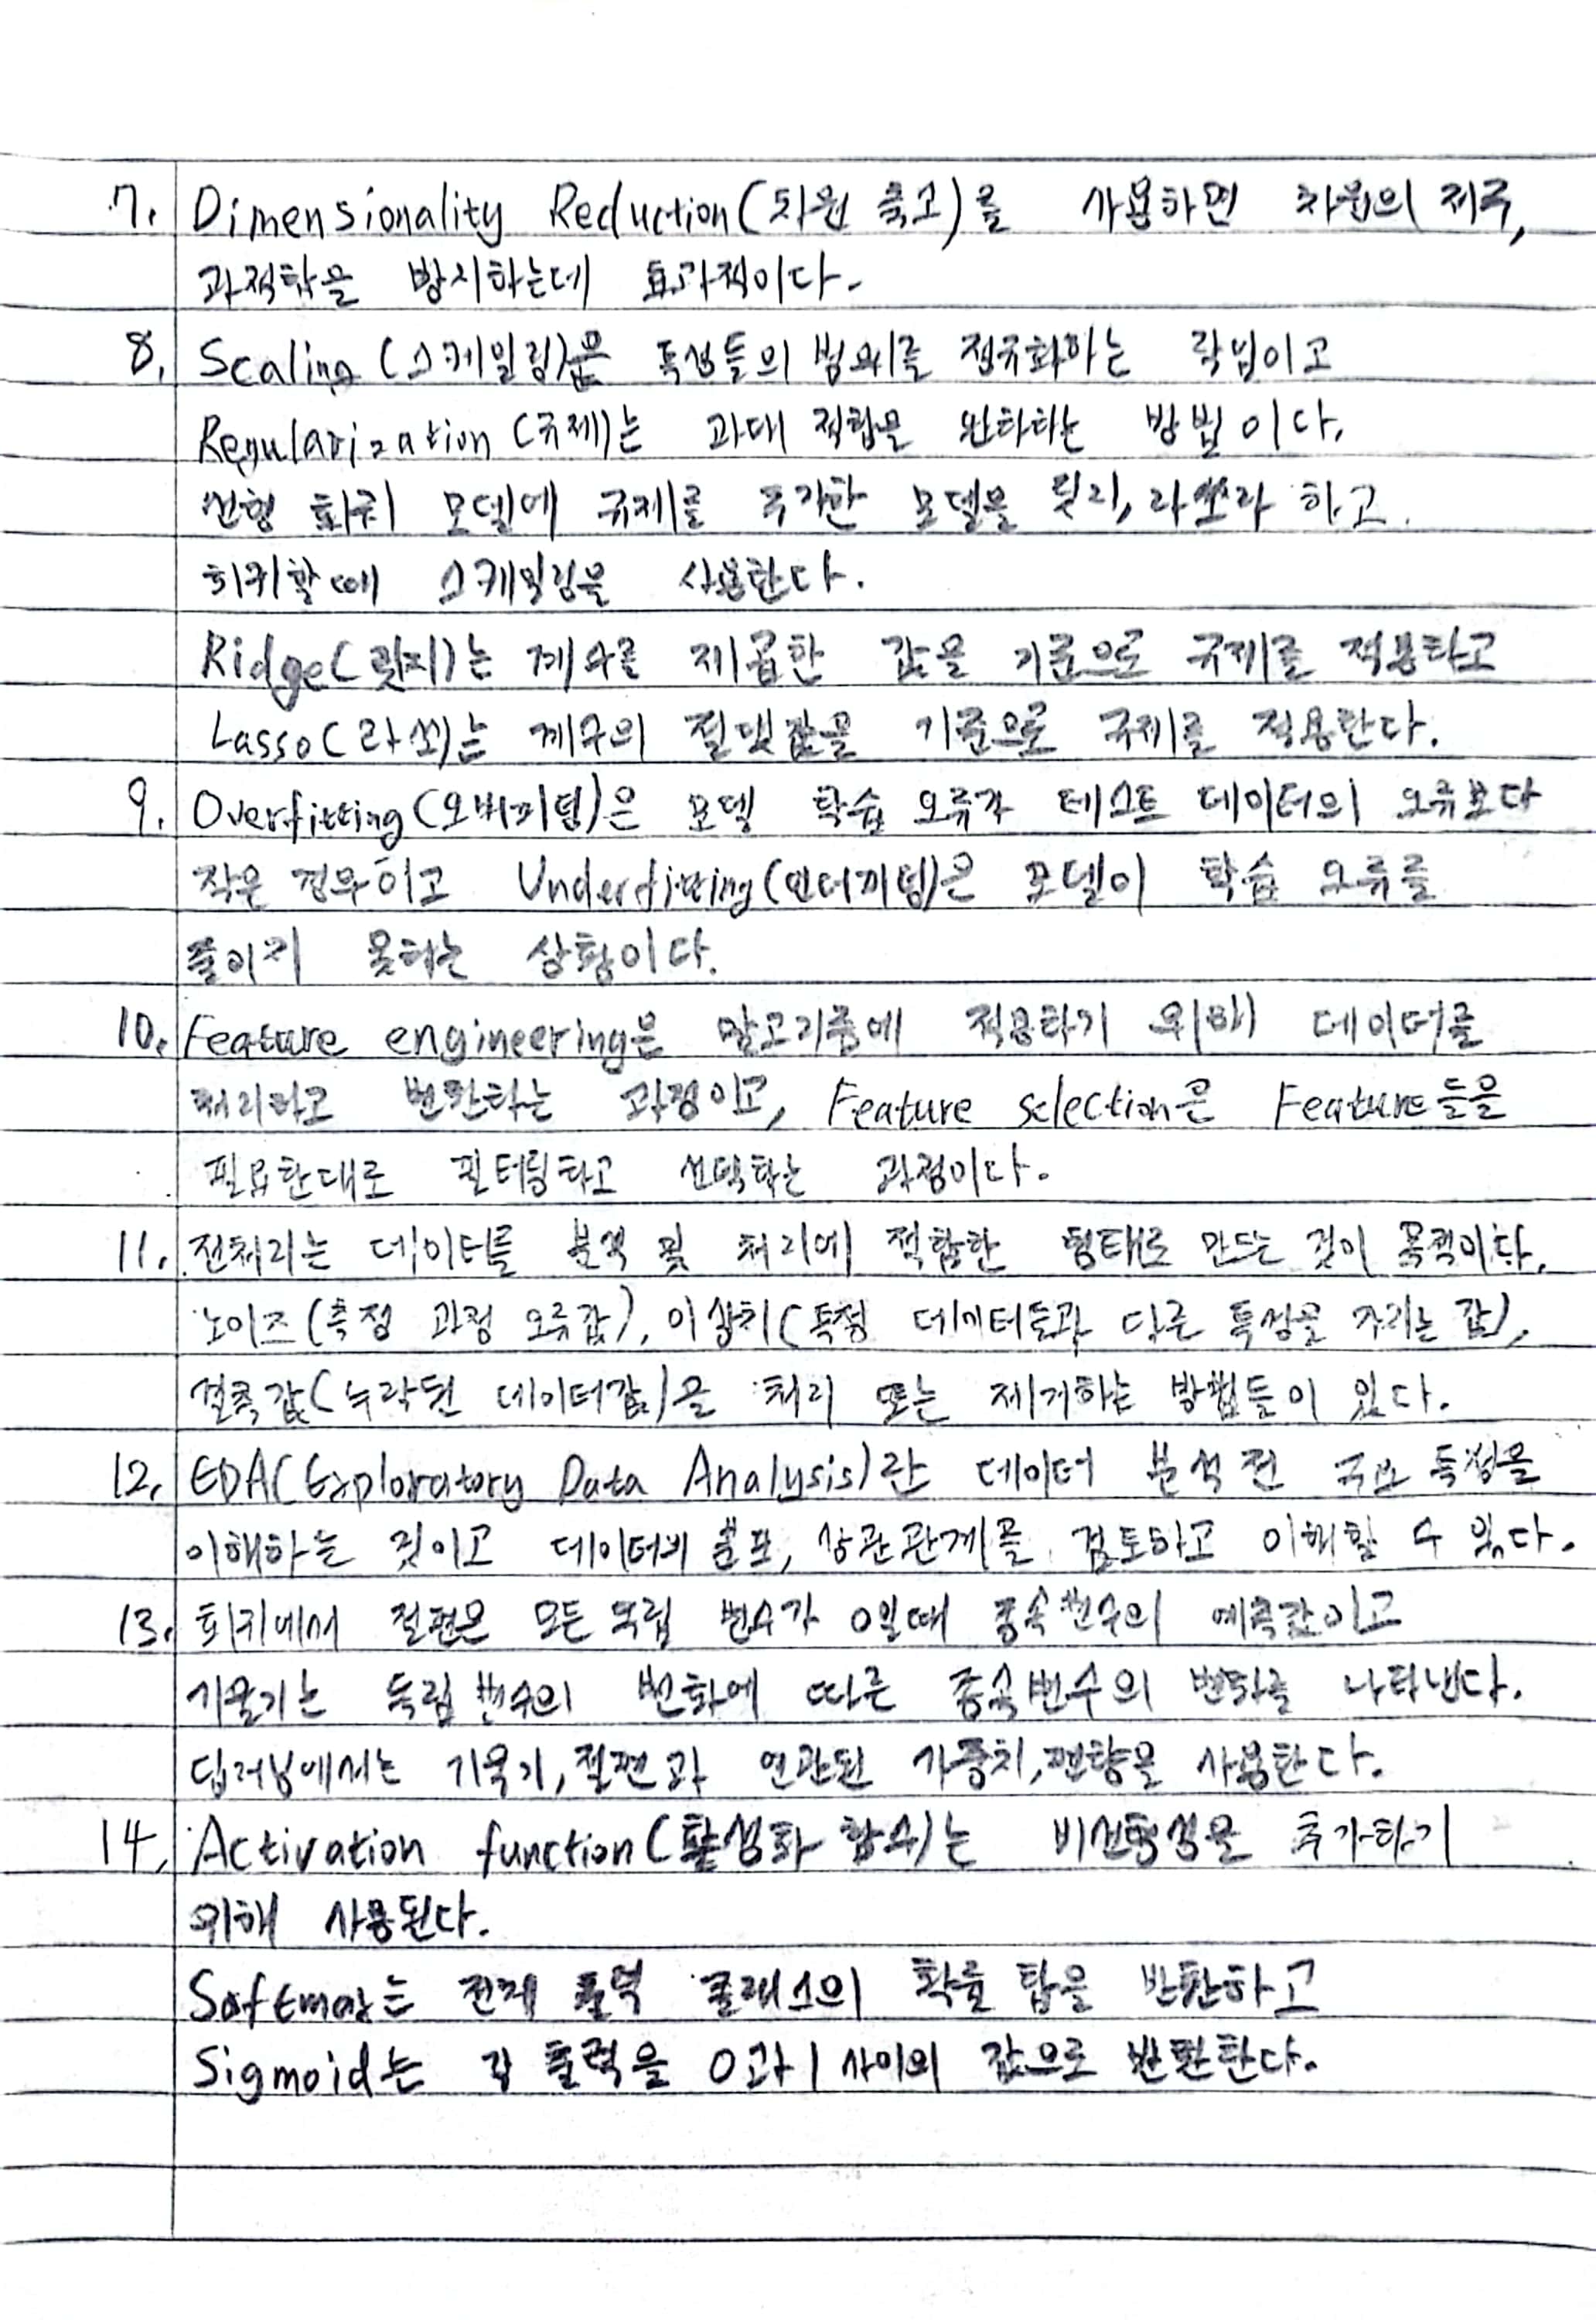 7. Dimensionality Reduction(차원 축소)를 사용하면 차원의 저주,
과적합을 방지하는데 효과적이다.
8. Scaling(스케일링)은 특성들의 범위를 정규화하는 작업이고
Regularization(규제)는 과대 적합을 완화하는 방법이다.
선형 회귀 모델에 규제를 추가한 모델을 릿지, 라쏘라 하고
회귀할때 스케일링을 사용한다.
Ridge(릿지)는 계수를 제곱한 값을 기준으로 규제를 적용하고
Lasso(라쏘)는 계수의 절댓값을 기준으로 규제를 적용한다.
9. Overfitting(오버피팅)은 모델 학습 오류가 테스트 데이터의 오류보다
작은 경우이고 Underfitting(언더피팅)은 모델이 학습 오류를
줄이지 못하는 상황이다.
10. Feature engineering은 알고리즘에 적용하기 위해 데이터를
처리하고 변환하는 과정이고, Feature selection은 Feature들을
필요한대로 필터링하고 선택하는 과정이다.
11. 전처리는 데이터를 분석 및 처리에 적합한 형태로 만드는 것이 목적이다.
노이즈(측정 과정 오류값), 이상치(특정 데이터들과 다른 특성을 가지는 값),
결측값(누락된 데이터값)을 처리 또는 제거하는 방법들이 있다.
12. EDA(Exploratory Data Analysis)란 데이터 분석 전 주요 특징을
이해하는 것이고 데이터의 분포, 상관관계를 검토하고 이해할 수 있다.
13. 회귀에서 절편은 모든 독립 변수가 0일때 종속변수의 예측값이고
기울기는 독립변수의 변화에 따른 종속변수의 변화를 나타낸다.
딥러닝에서는 기울기, 절편과 연관된 가중치, 편향을 사용한다.
14. Activation function(활성화 함수)는 비선형성을 추가하기
위해 사용된다.
Softmax는 전체 출력 클래스의 확률 합을 반환하고
Sigmoid는 각 출력을 0과 1 사이의 값으로 반환한다.